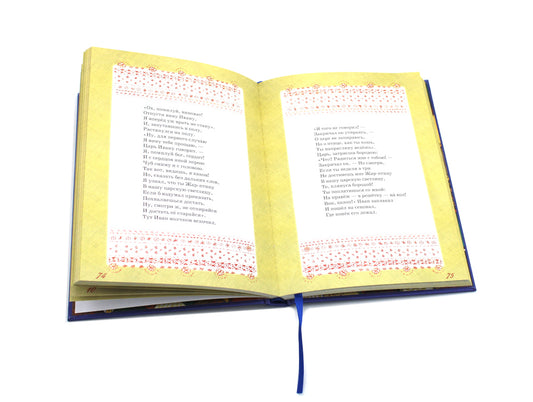 «Ох, помилуй, виноват!
Отпусти вину Ивану,
Я вперёд уж врать не стану».
И, закутавшись в полу,
Растянулся на полу.
«Ну, для первого случаю
Я вину тебе прощаю, —
Царь Ивану говорит. —
Я, помилуй бог, сердит!
И с сердцов иной порою
Чуб сниму и с головою.
Так вот, видишь, я каков!
Но, сказать без дальних слов,
Я узнал, что ты Жар-птицу
В нашу царскую светлицу,
Если б вздумал приказать,
Похваляешься достать.
Ну, смотри ж, не отпирайся
И достать её старайся».
Тут Иван волчком вскочил,
74
«Я того не говорил! —
Закричал он,
О птице, как ты хошь,
Ты напраслину ведёшь».
Царь, затрясши бородою:
«Что? Рядиться мне с тобою! —
Закричал он. — Но смотри,
Если ты недели в три
Не достанешь мне Жар-птицу
В нашу царскую светлицу,
То, клянуся бородой!
Ты поплатишься со мной:
Вон, холоп!» Иван заплакал
И пошёл на сеновал,
Где конёк его лежал.
75